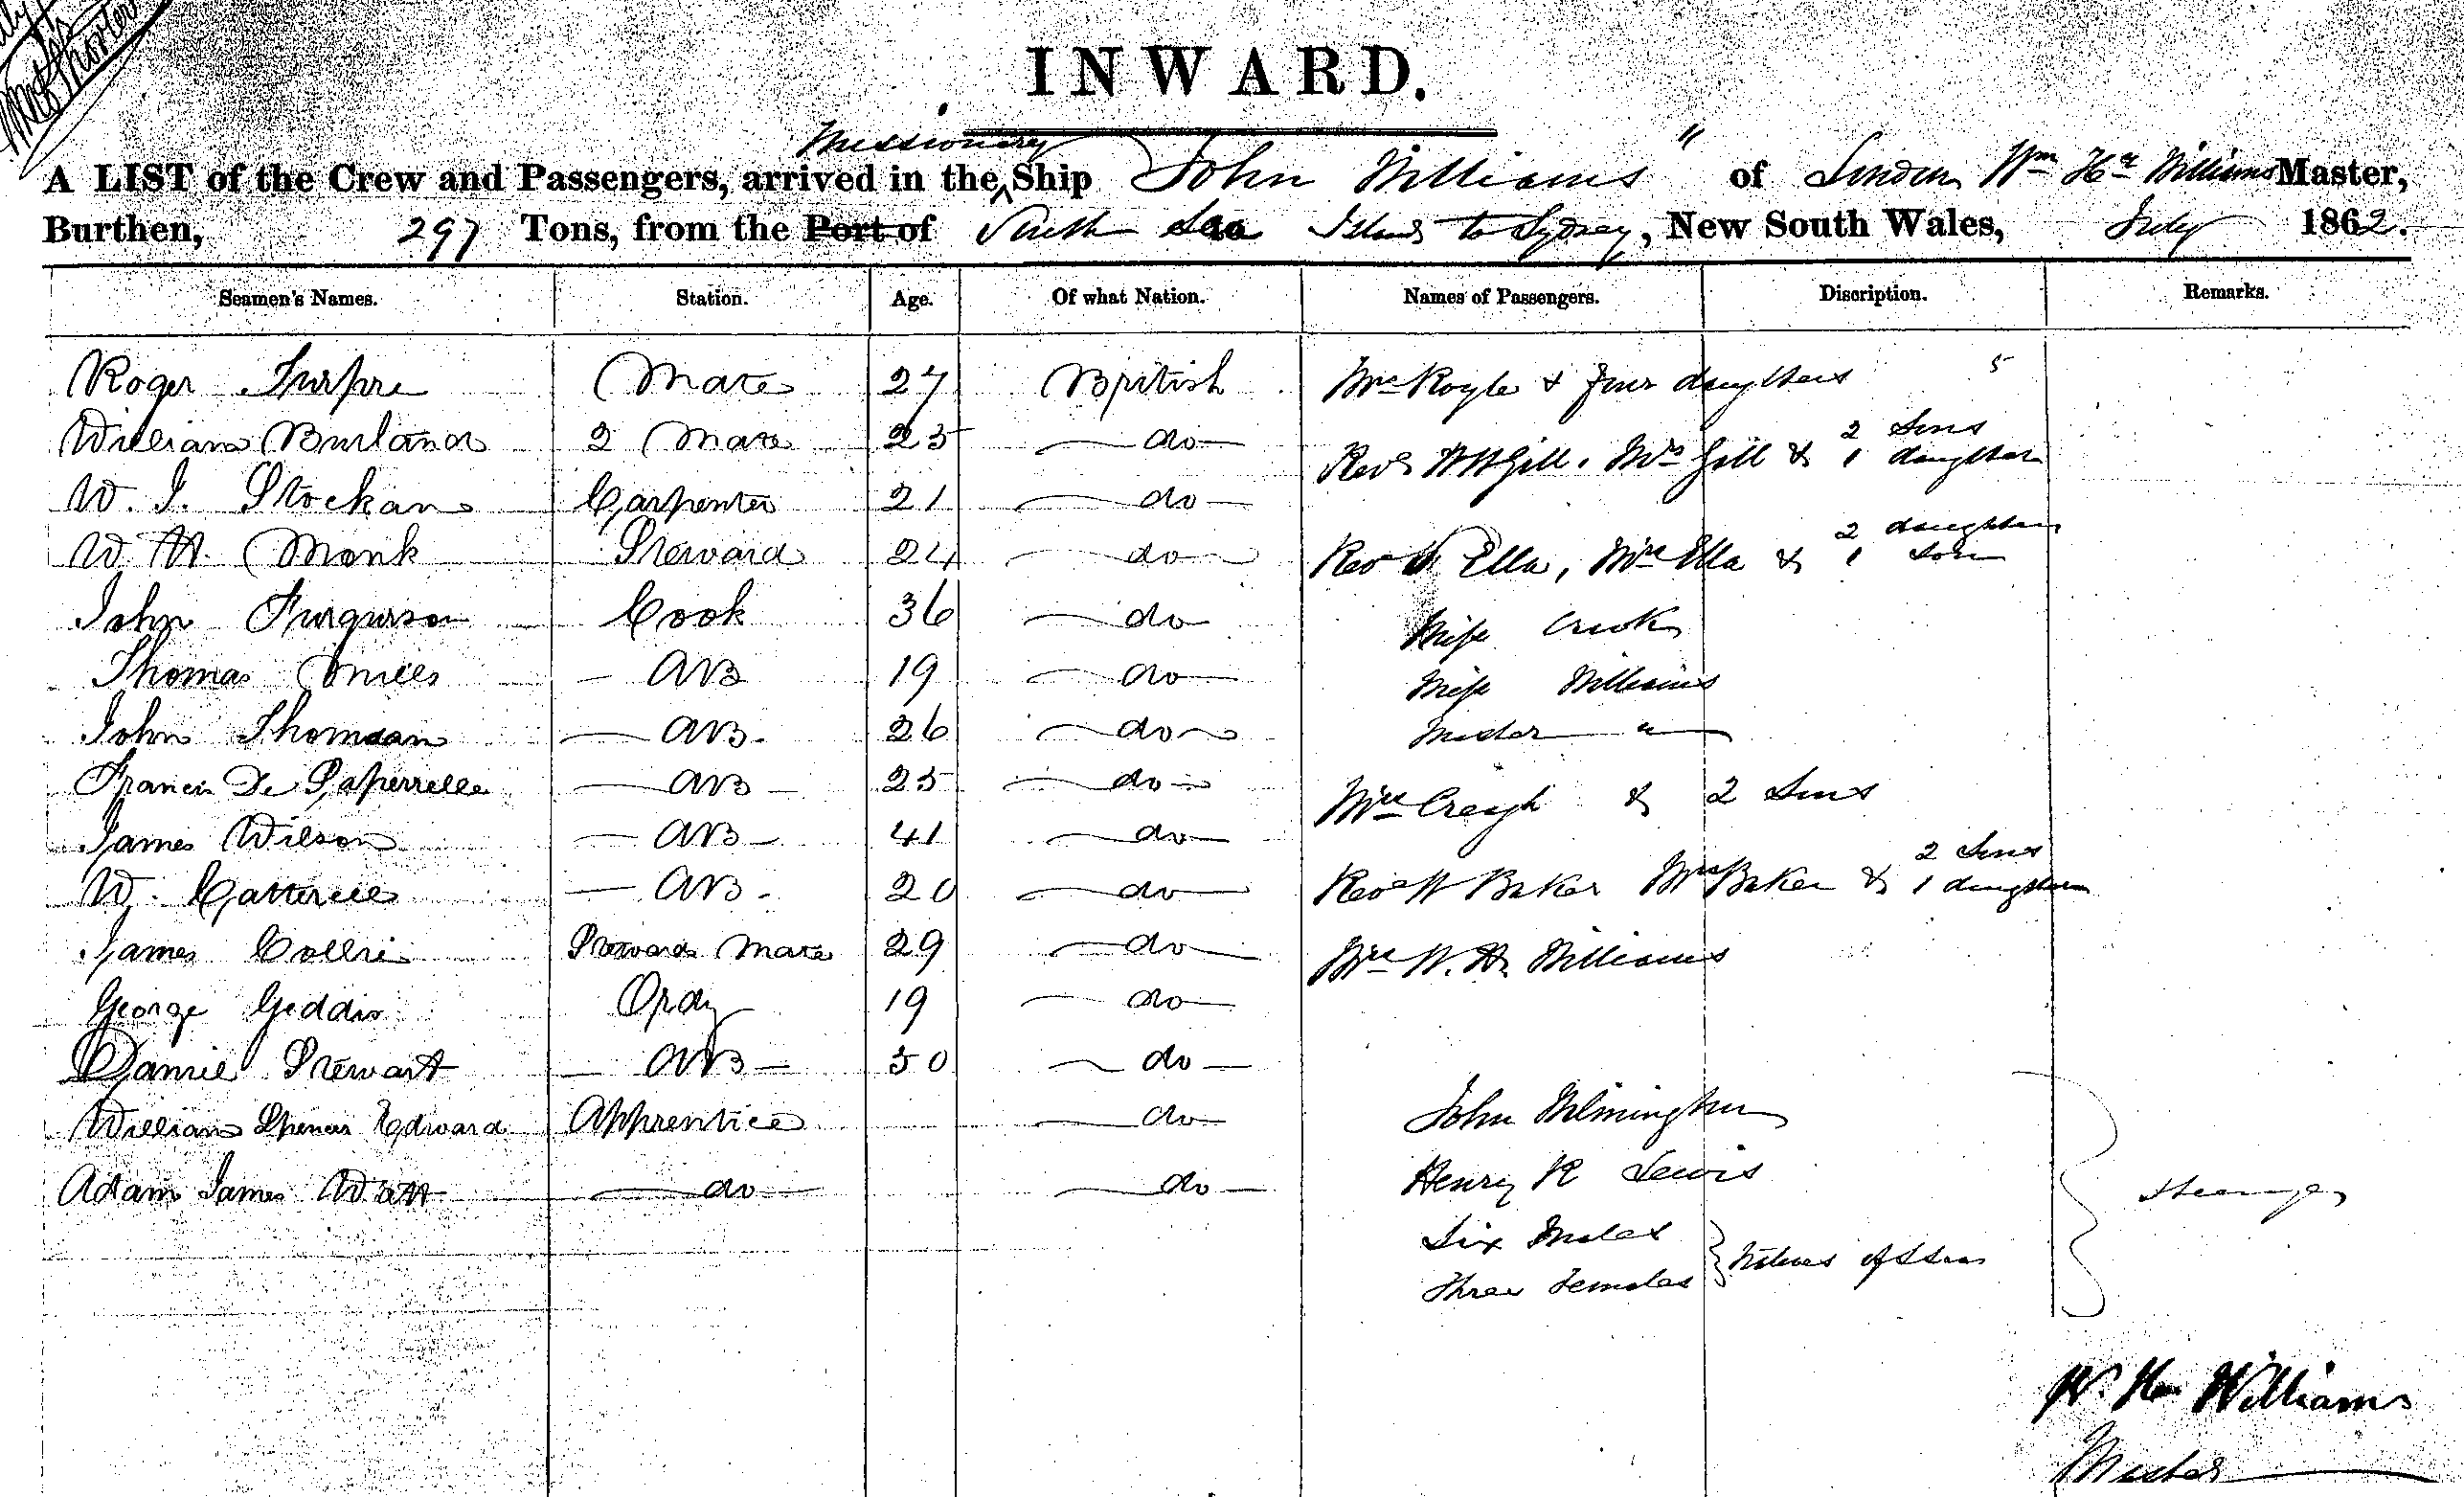 INWARD.
Missionary
A LIST of the Crew and Passengers, arrived in the ^ Ship John Williams " of London Wm Hy Williams Master,
Burthen, 297 Tons, from the Port of South Sea Islands to Sydney, New South Wales, July 1862.
Seamen's Names. Station. Age. Of what Nation. Names of Passengers. Discription. Remarks.
Roger Turpie Mate 27 British Mrs Royle & four daughters 5
William Burland 2 Mate 25 do Revd W W Gill. Mrs Gill & 2 Sons 1 daughter
W. J. Stockan Carpenter 21 do
W. H. Monk Steward 24 do Revd S Ella, Mrs Ella & 2 daughters 1 Son
John Furgurson Cook 36 do Miss Crook
Thomas Mills AB 19 do Miss Williams
John Thomson AB 26 do Master "
Francis De Paperrelle AB 25 do Mrs Creagh & 2 Sons
James Wilson AB 41 do
W. Catterell AB 20 do Revd W Baker Mrs Baker & 2 Sons 1 daughter
James Collie Stewards Mate 29 do Mrs W. H. Williams
George Geddis Ordy 19 do
Daniel Stewart AB 50 do
William Spencer Edward Apprentice do John Wilmington
Adam James Watt do do Henry R Lewis Steerage
Six Males
Three Females } Natives of Seas
W. Hy Williams
Master